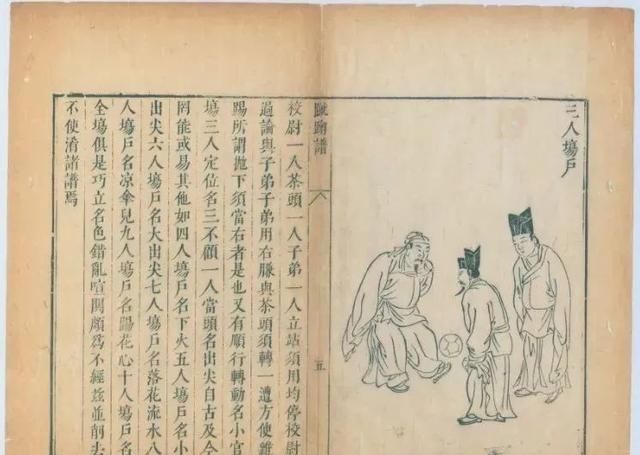 三人塲戶
蹴踘譜
五
校尉一人茶頭一人子弟一人立站須用均停校尉
過論與子弟子弟用右膁與茶頭須轉一遭方使雜
踢所謂拋下須當右者是也又有順行轉動名小官
塲三人定位名三不顧一人當頭名出尖自古及今
罔能或易其他如四人塲戶名下火五人塲戶名小
出尖六人塲戶名大出尖七人塲戶名落花流水八
人塲戶名凉傘兒九人塲戶名踢花心十人塲戶名
全塲俱是巧立名色錯亂喧鬧頗爲不經茲並削去
不使淆諸譜焉